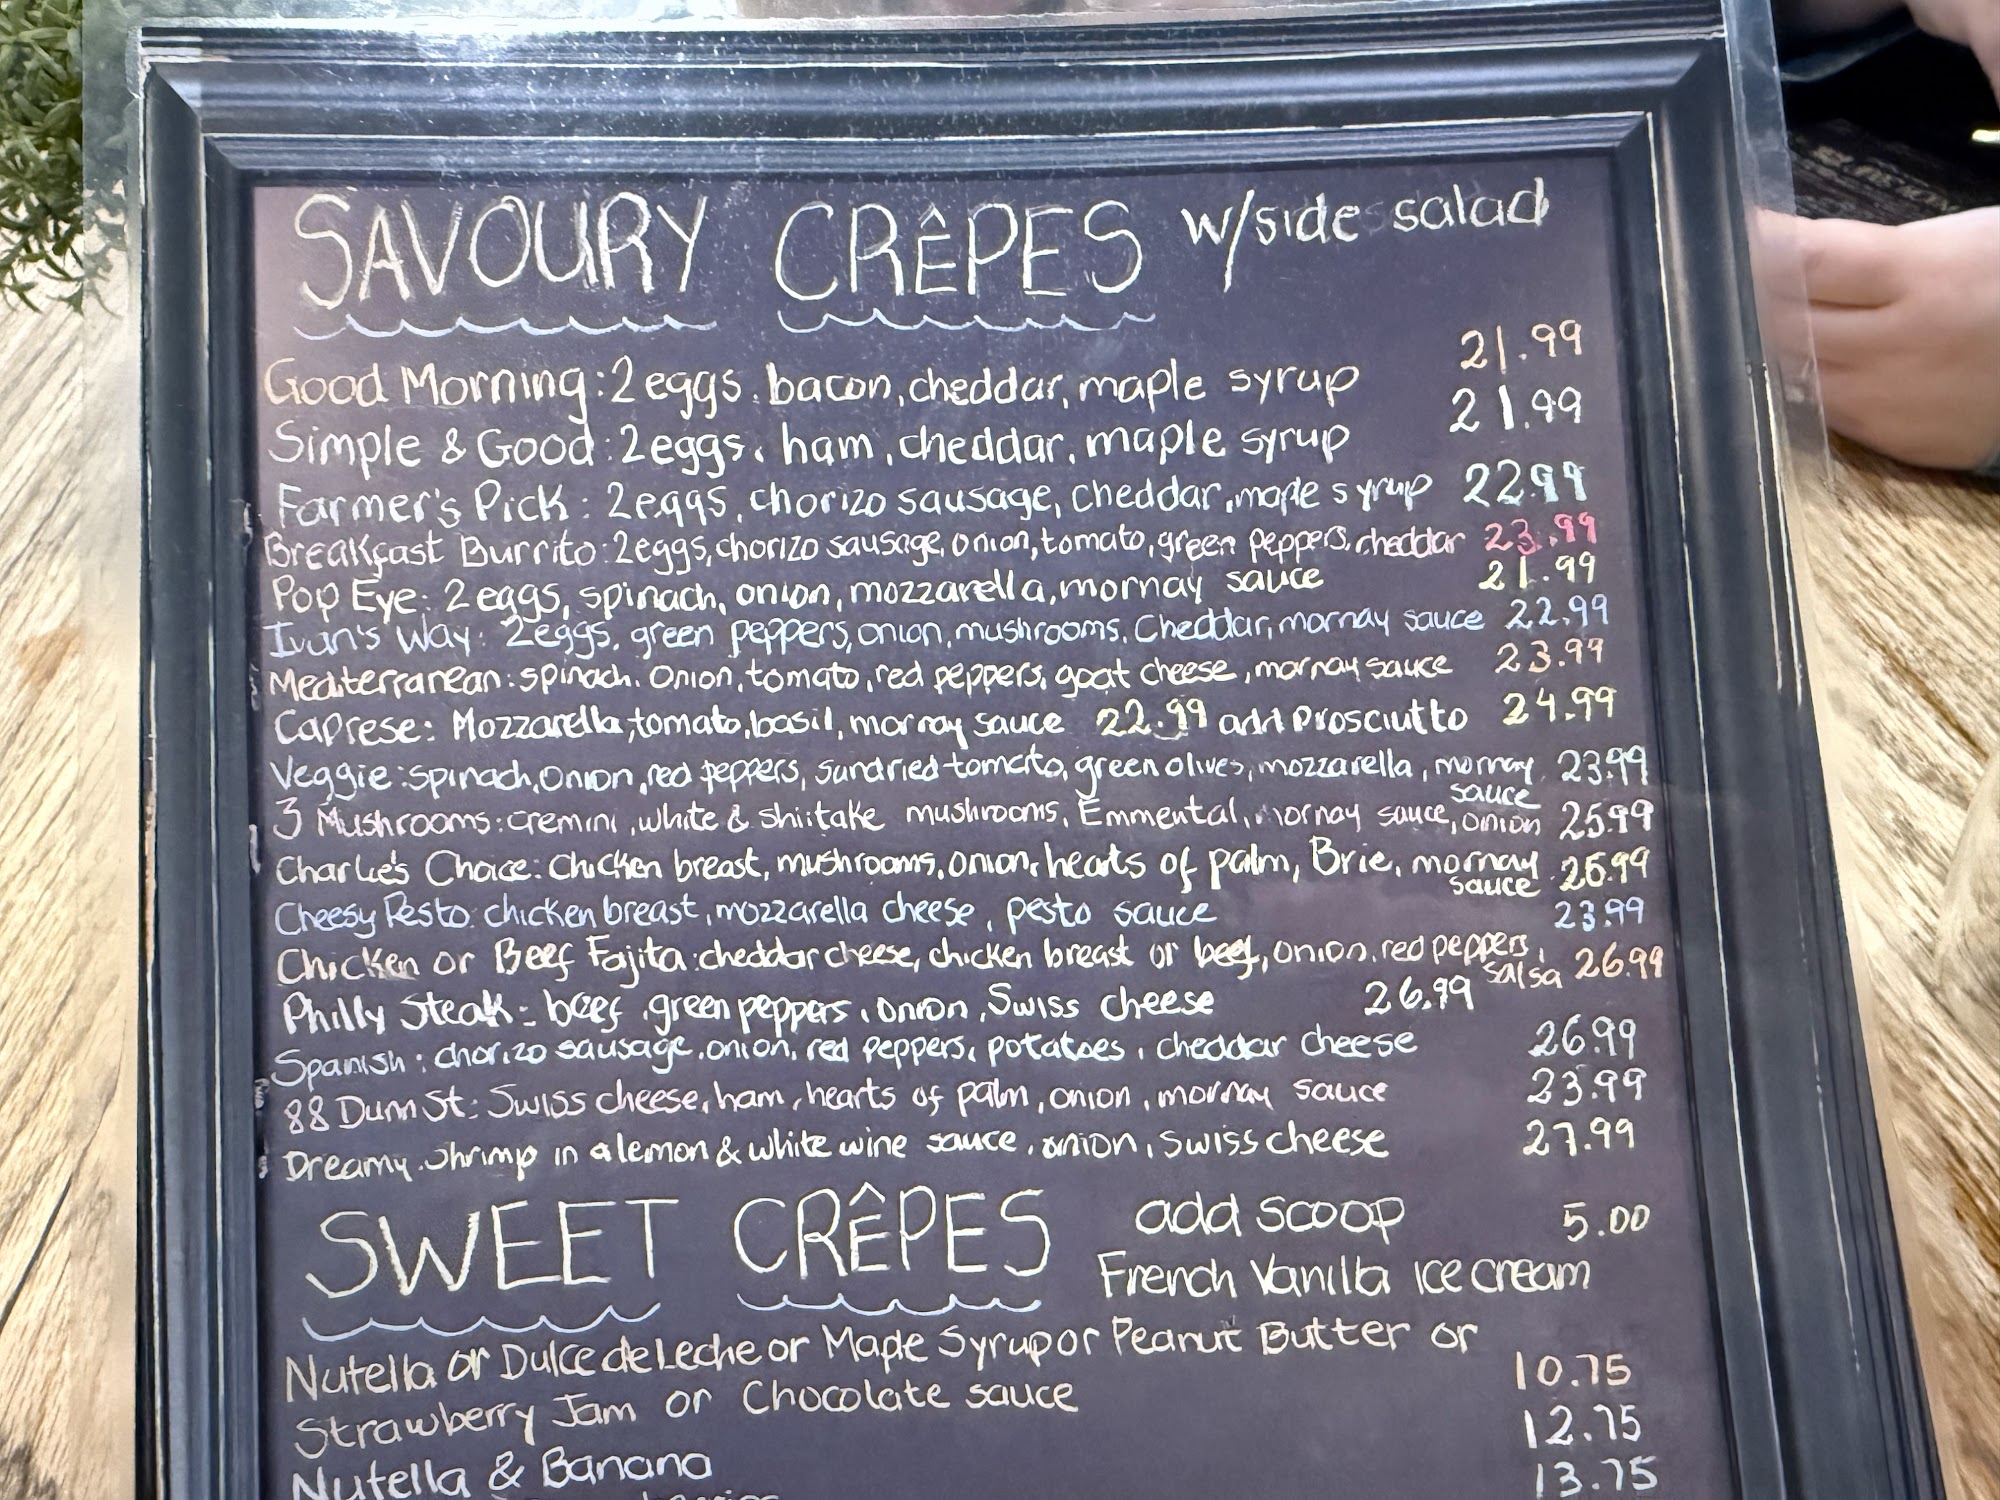 SAVOURY CRÊPES w/side salad
Good Morning: 2 eggs, bacon, cheddar, maple syrup 21.99
Simple & Good: 2 eggs, ham, cheddar, maple syrup 21.99
Farmer's Pick: 2 eggs, chorizo sausage, cheddar, maple syrup 22.99
Breakfast Burrito: 2 eggs, chorizo sausage, onion, tomato, green peppers, cheddar 23.99
Pop Eye: 2 eggs, spinach, onion, mozzarella, mornay sauce 21.99
Ivan's Way: 2 eggs, green peppers, onion, mushrooms, Cheddar, mornay sauce 22.99
Mediterranean: spinach, onion, tomato, red peppers, goat cheese, mornay sauce 23.99
Caprese: Mozzarella, tomato, basil, mornay sauce 22.99 add Prosciutto 24.99
Veggie: spinach, onion, red peppers, sundried tomato, green olives, mozzarella, mornay sauce 23.99
3 Mushrooms: cremini, white & shiitake mushrooms, Emmental, mornay sauce, onion 25.99
Charlie's Choice: chicken breast, mushrooms, onion, hearts of palm, Brie, mornay sauce
Cheesy Pesto: chicken breast, mozzarella cheese, pesto sauce 23.99
Chicken or Beef Fajita: cheddar cheese, chicken breast or beef, onion, red peppers, salsa 26.99
Philly Steak: beef, green peppers, onion, Swiss cheese 26.99
Spanish: chorizo sausage, onion, red peppers, potatoes, cheddar cheese 26.99
88 Dunn St: Swiss cheese, ham, hearts of palm, onion, mornay sauce 23.99
Dreamy: shrimp in a lemon & white wine sauce, onion, Swiss cheese 27.99
SWEET CRÊPES add scoop 5.00
French Vanilla ice cream
Nutella or Dulce de Leche or Maple Syrup or Peanut Butter or
Strawberry Jam or Chocolate sauce 10.75
Nutella & Banana 12.75
13.75